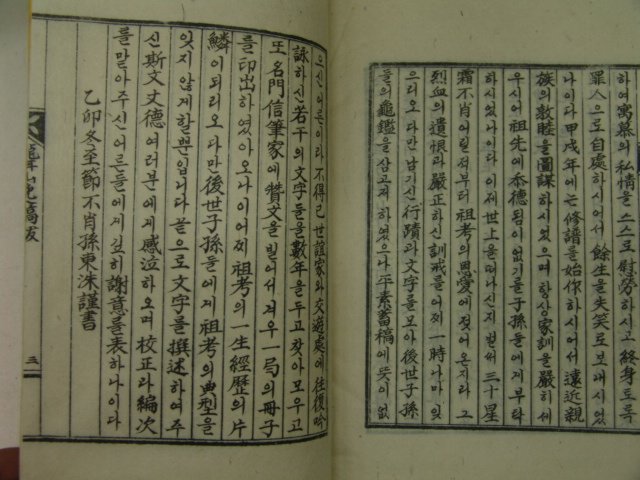 하여寓慕의私情을스스로慰勞하시고終身토록
罪人으로自處하시어서餘生을失笑로보내시었
나이다甲戌年에는修譜를始作하시어서遠近親
族의敦睦을圖謀하시었으며항상家訓을嚴히세
우시어祖先에忝德됨이없기를子孫들에게부탁
하시었나이다이제世上을떠나신지벌써三十星
霜不肖어릴적부터祖考의恩愛에젖어오지라그
烈血의遺恨과嚴正하신訓戒를어찌一時나마잊
으리오다만남기신行蹟과文字를모아後世子孫
들의龜鑑을삼고저하였으나平素蓄稿에뜻이없
으신어른이라不得已世誼家와交遊處에往復吟
詠하신若干의文字들을數年을두고찾아모우고
또名門信筆家에贊文을빌어서겨우一局의冊子
를印出하였아오나이어찌祖考의一生經歷의片
鱗이되리오다만後世子孫들에게祖考의典型을
잊지않게할뿐입니다끝으로文字를撰述하여주
신斯文丈德여러분에게感泣하오며校正과編次
를말아주신어른들에게깊히謝意를表하나이다
乙卯冬至節不肖孫東洙謹書
三